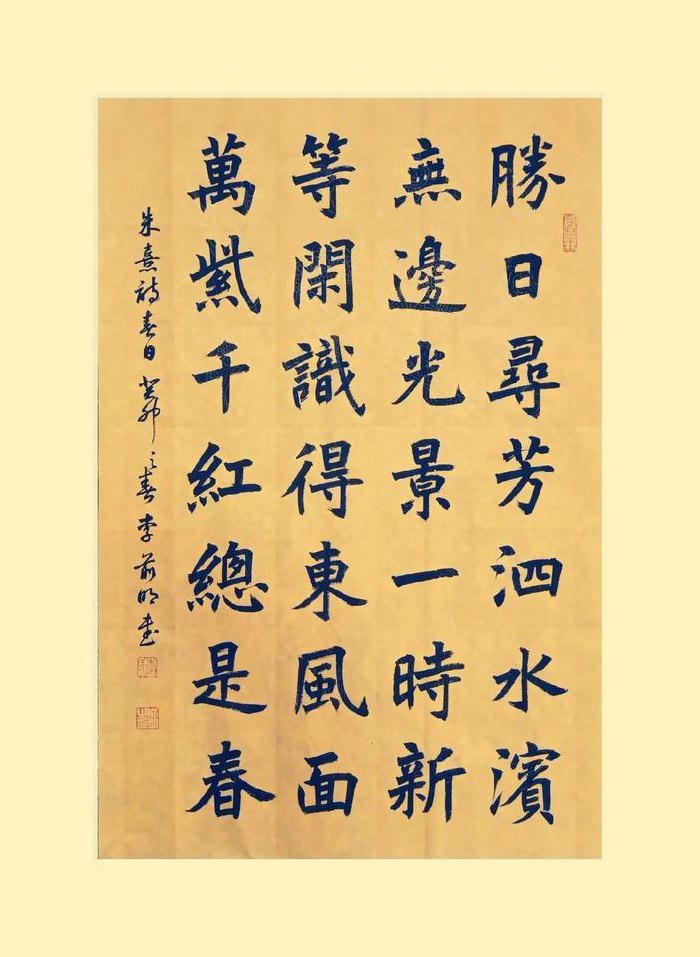 勝日尋芳泗水濱
無邊光景一時新
等閑識得東風面
萬紫千紅總是春
朱熹詩春日癸卯之春李前明书